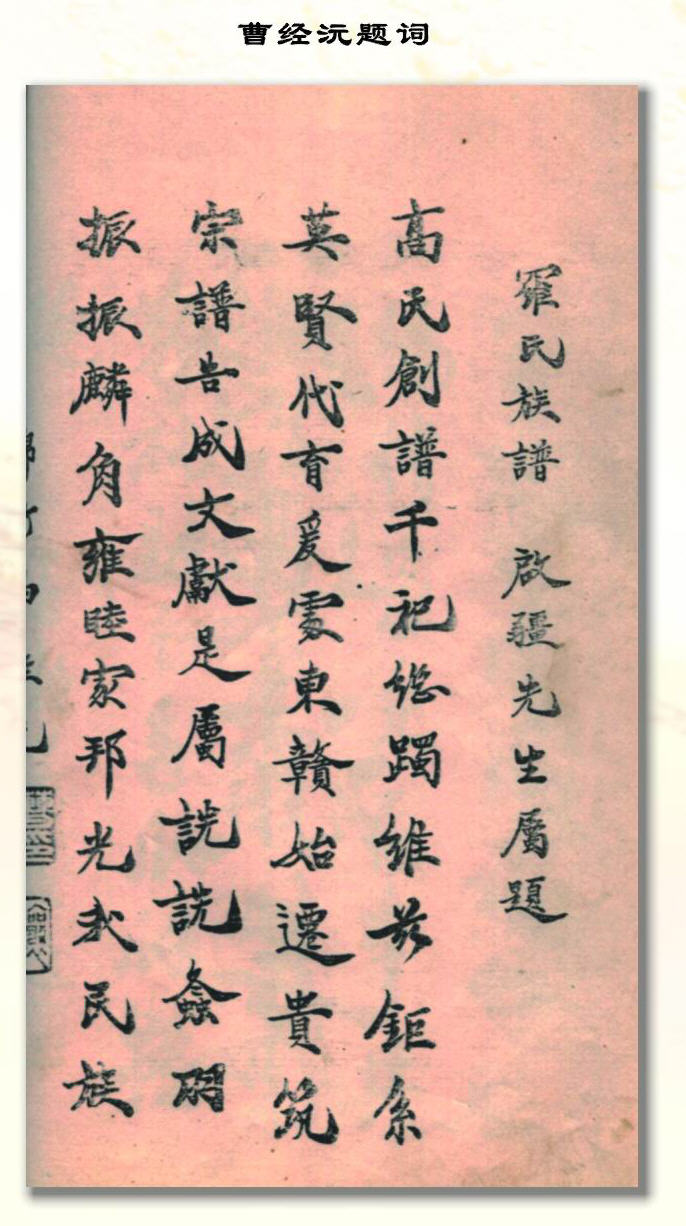 曹经沅题词
羅民族譜 啟疆先生屬題
高民創譜千祀緫躅維茲鉅系
英賢代育爰處東贛始遷貴筑
宗譜告成文獻是屬詵詵螽羽
振振麟角雍睦家邦光我民族